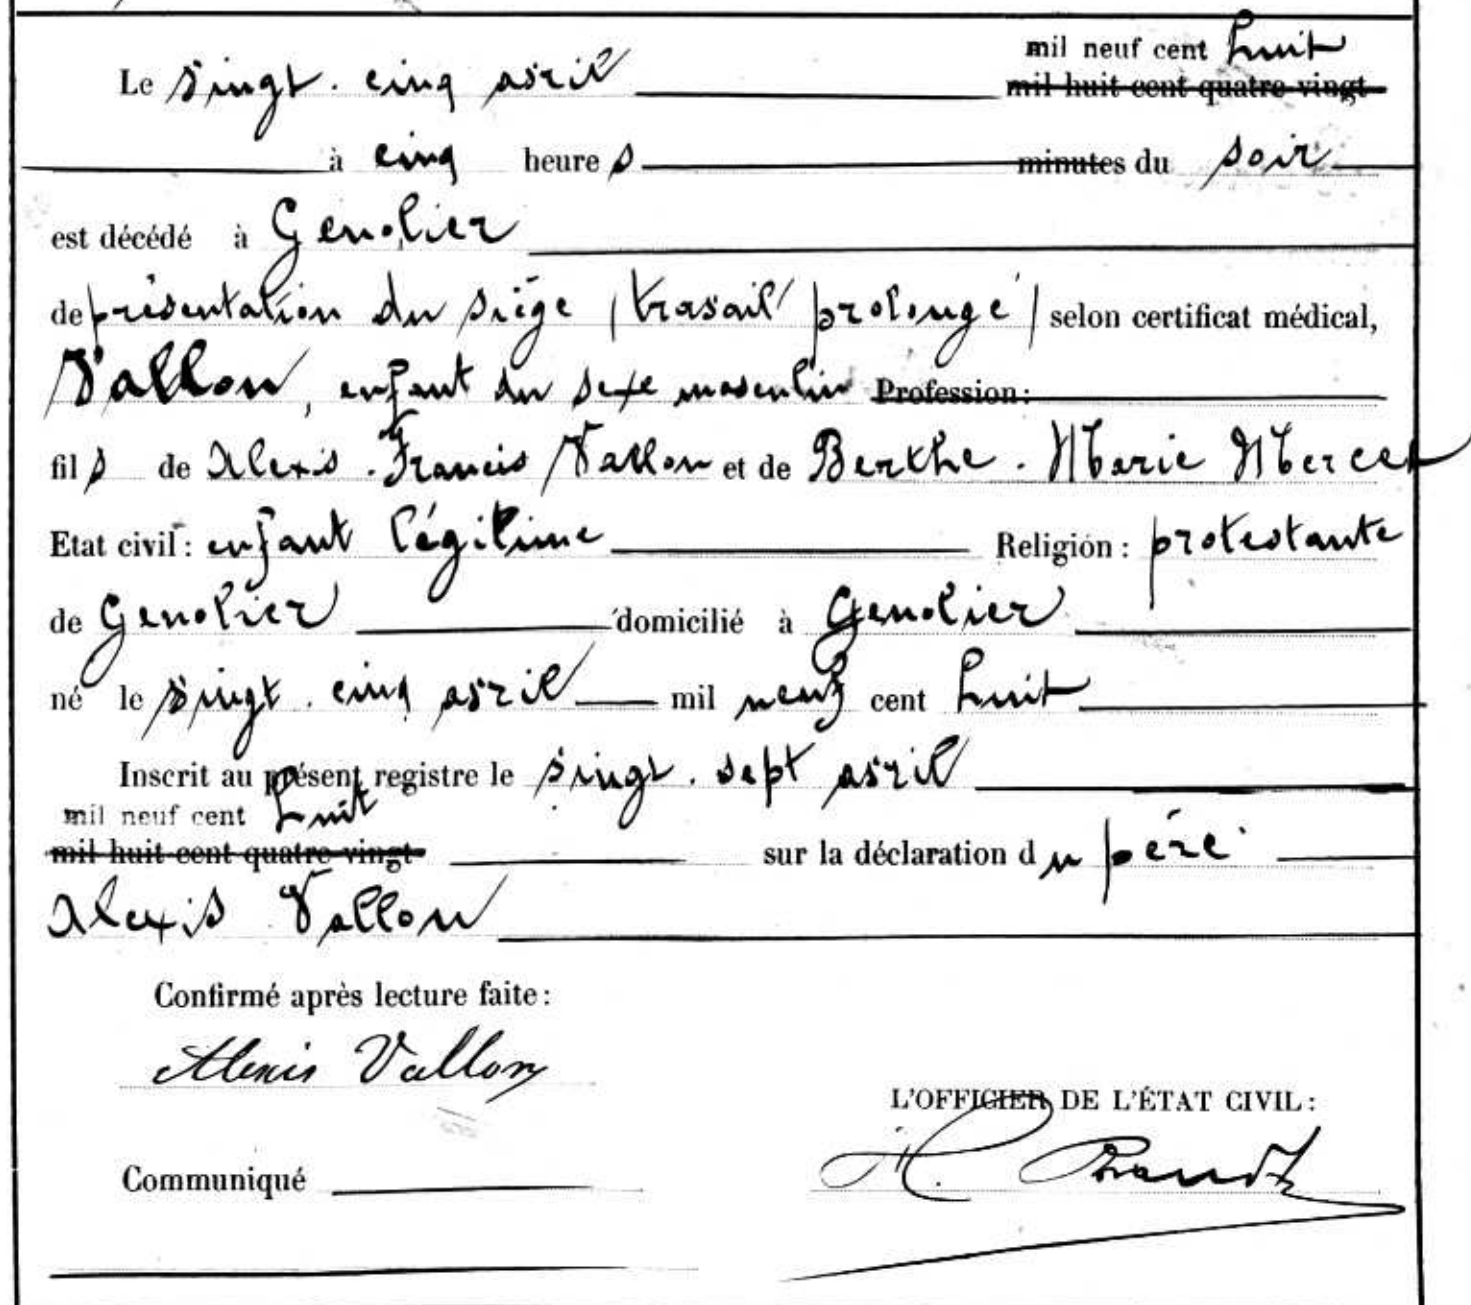 mil neuf cent huit
Le vingt-cinq avril mil huit cent quatre-vingt
à cinq heures minutes du soir
est décédé à Genolier
de présentation du siège (travail prolongé) selon certificat médical,
Vallon, enfant du sexe masculin Profession:
fils de Alexis-Francis Vallon et de Berthe-Marie Mercer
Etat civil: enfant légitime Religion: protestante
de Genolier domicilié à Genolier
né le vingt-cinq avril mil neuf cent huit
Inscrit au présent registre le vingt-sept avril
mil neuf cent huit
mil huit cent quatre-vingt- sur la déclaration du père
Alexis Vallon
Confirmé après lecture faite:
Alexis Vallon
L'OFFICIER DE L'ÉTAT CIVIL:
Communiqué